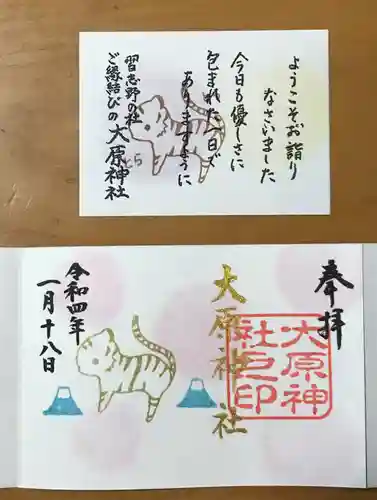 ようこそお詣り
なさいました
今日も優しさに
包まれた一日で
ありますように
習志野の杜
ご縁結びの大原神社
とら
奉拝
大原神社
大原神
社之印
令和四年
一月十八日